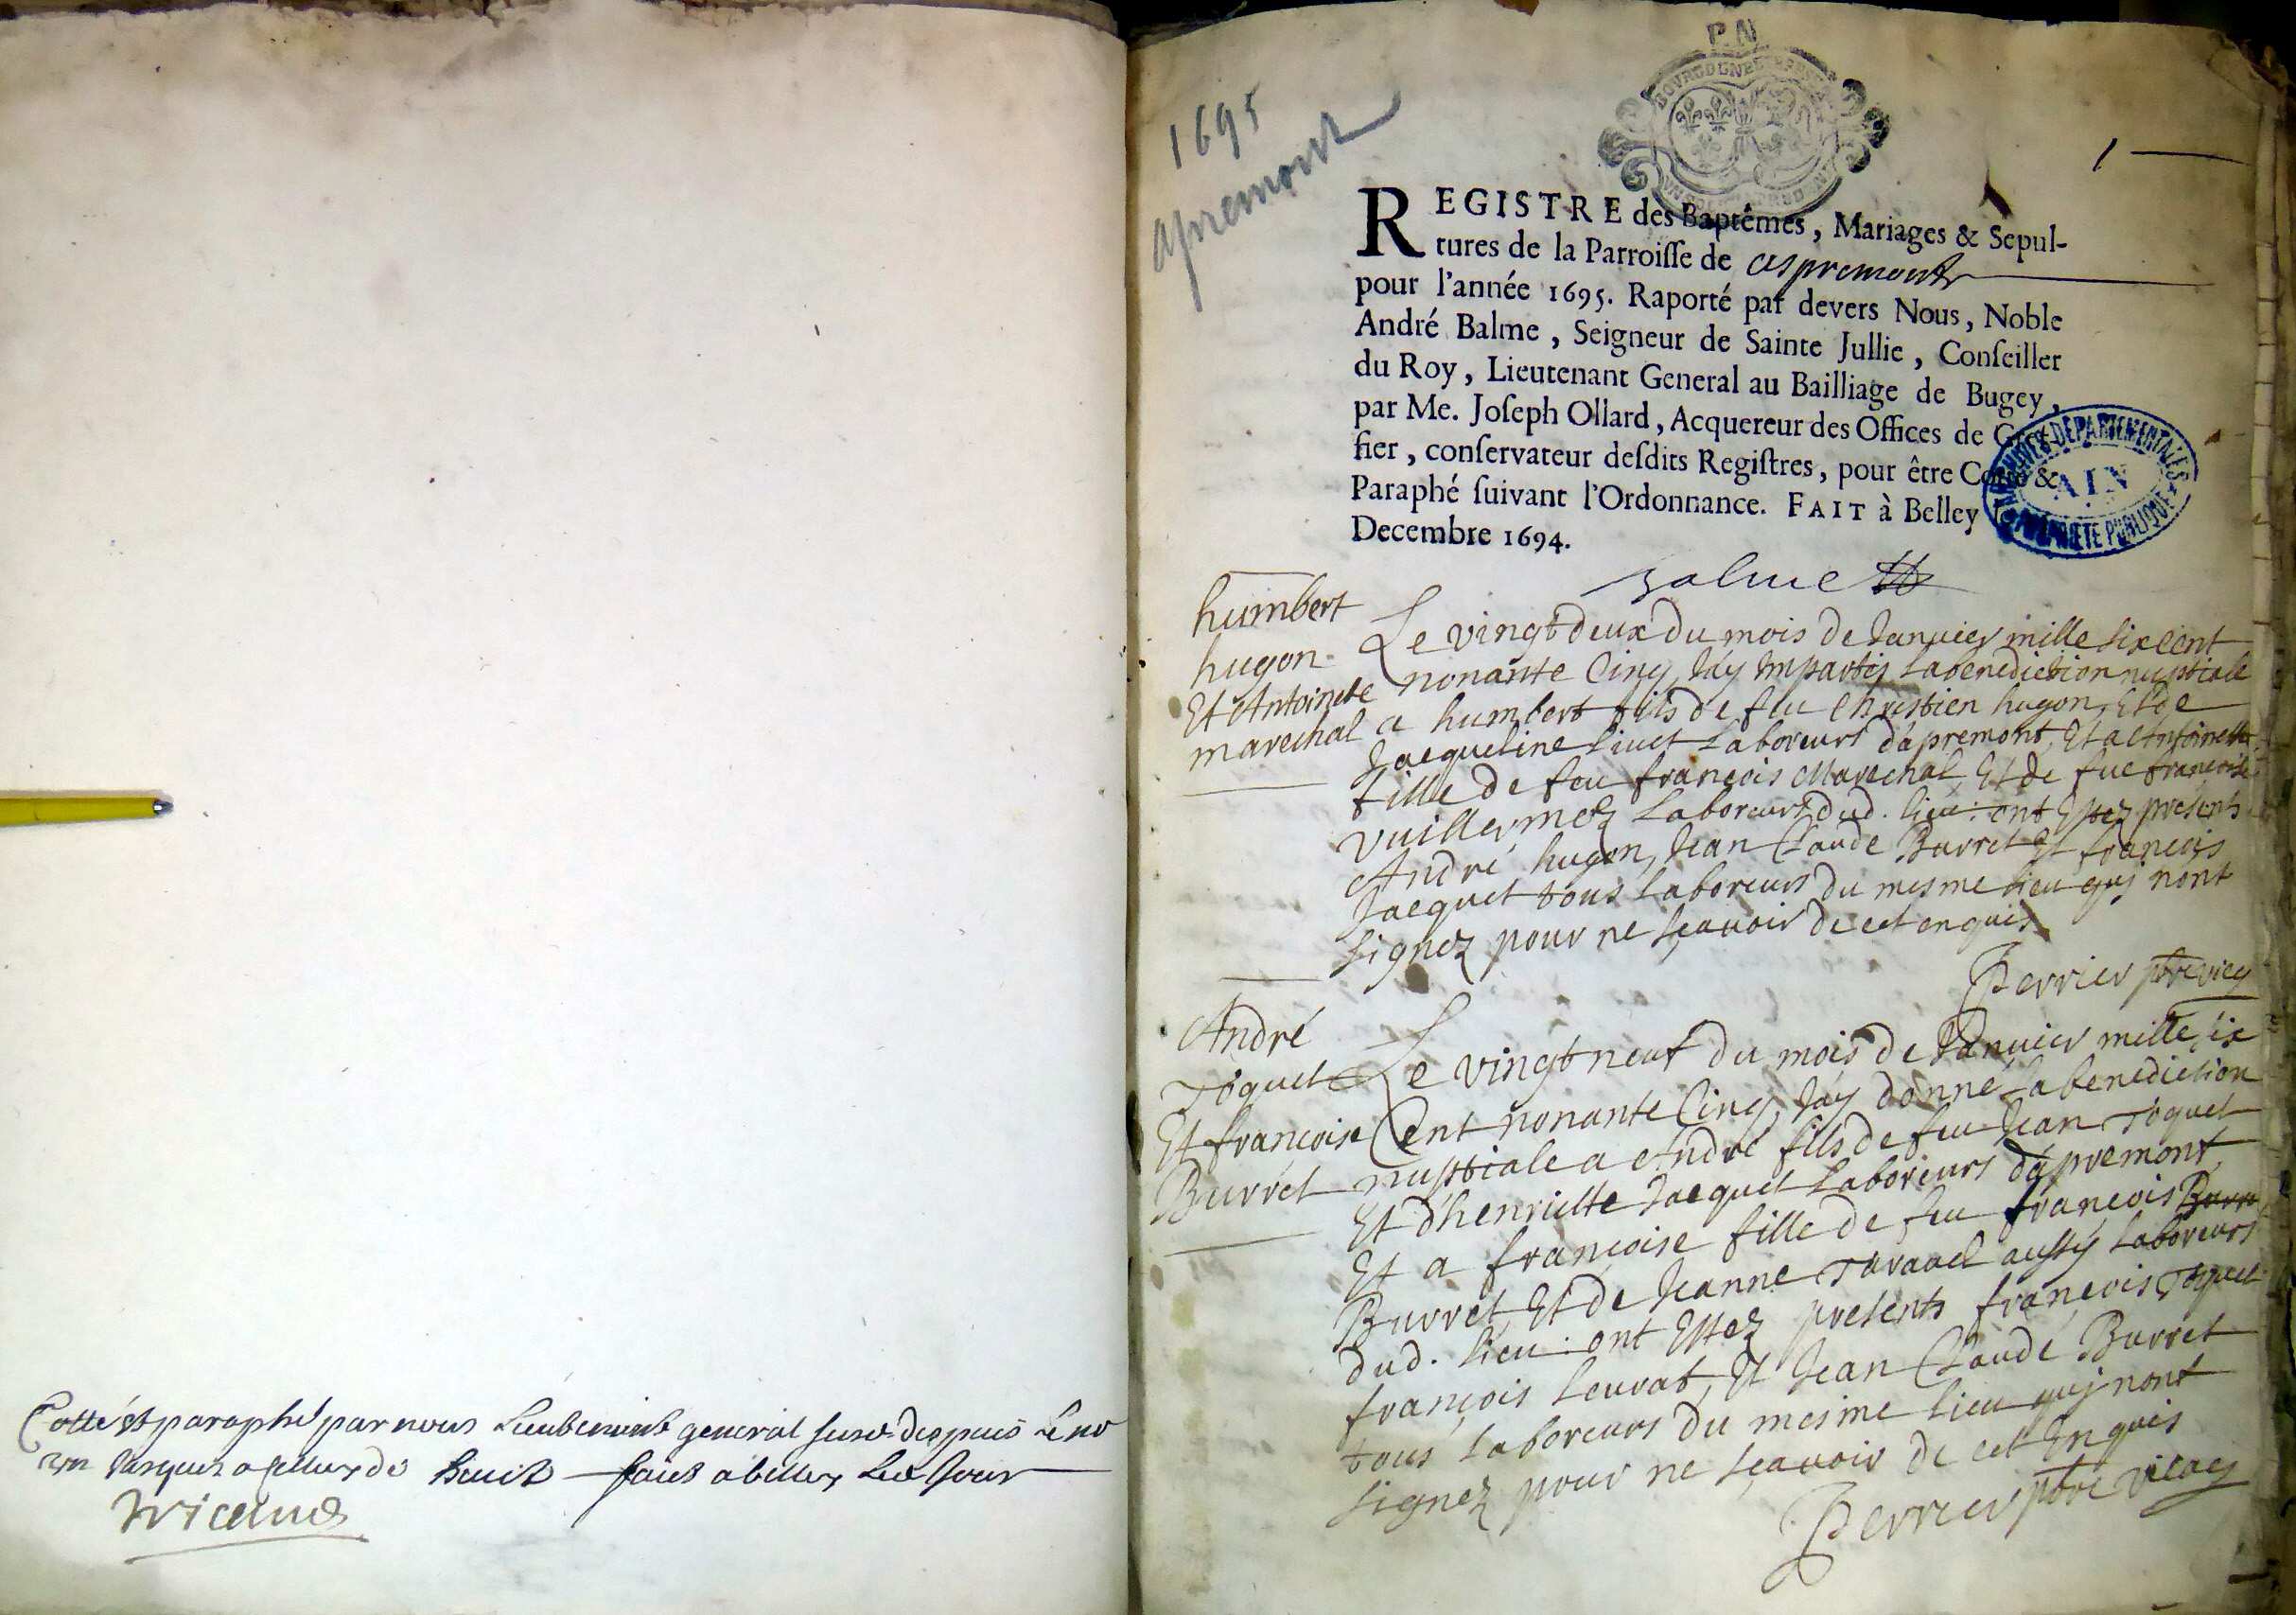 Cotté et paraphé par nous Lieutenent general susd. despuis le no
un jusques a celluy de huict fait a belley led. jour
1695
apremont
P.N
BOURGOGNE
1
REGISTRE des Baptêmes, Mariages & Sepul-
tures de la Parroiſſe de aspremont
pour l'année 1695. Raporté par devers Nous, Noble
André Balme, Seigneur de Sainte Jullie, Conſeiller
du Roy, Lieutenant General au Bailliage de Bugey,
par Me. Joſeph Ollard, Acquereur des Offices de Gref-
fier, conſervateur deſdits Regiſtres, pour être Cotté &
Paraphé ſuivant l'Ordonnance. FAIT à Belley
Decembre 1694.
ARCHIVES DEPARTEMENTALES
AIN
PROPRIETE PUBLIQUE
Balme
humbert
hugon
Et Antoinete
marechal
Le vingt deux du mois de Januier mille six cent
nonante Cinq, Jáy impartij la benediction nuptiale
a humbert fils de feu Christien hugon, Et de
Jacqueline liuet laboreurs dápremont, Et a Antoinette
fille de feu françois Marechal Et de fue françoise
vuillermoz laboreurs dud. lieu: ont Estez presents
André hugon, Jean Claude Burret Et françois
Jacquet tous laboreurs du mesme lieu quj nont
signez pour ne sçauoir de cet enquis
Perrier ptre vicaj
André
Toquet
Et françoise
Burret
Le vingt neuf du mois de Januier mille six
Cent nonante Cinq, Jáy donné la benediction
nuptiale a André fils de feu Jean Toquet
Et d'henriette Jacquet laboreurs dápremont
Et a françoise fille de feu françois Burre
Burret, Et de Jeanne Tavaud aussy laboreurs
dud. lieu: ont Estez presents françois Toquet
françois leurat, Et Jean Claude Burret
tous laboreurs du mesme lieu quj nont
signez pour ne sçauoir de cet Enquis
Perrier ptre vicaj